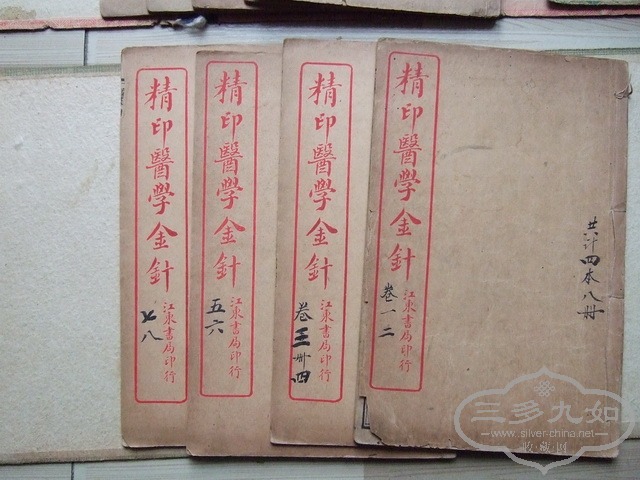 共计四本八册
精印醫學金針
卷一二
江東書局印行
精印醫學金針
卷三册四
江東書局印行
精印醫學金針
五六
江東書局印行
精印醫學金針
七八
江東書局印行
三多九如
www.silver-china.net
收藏网